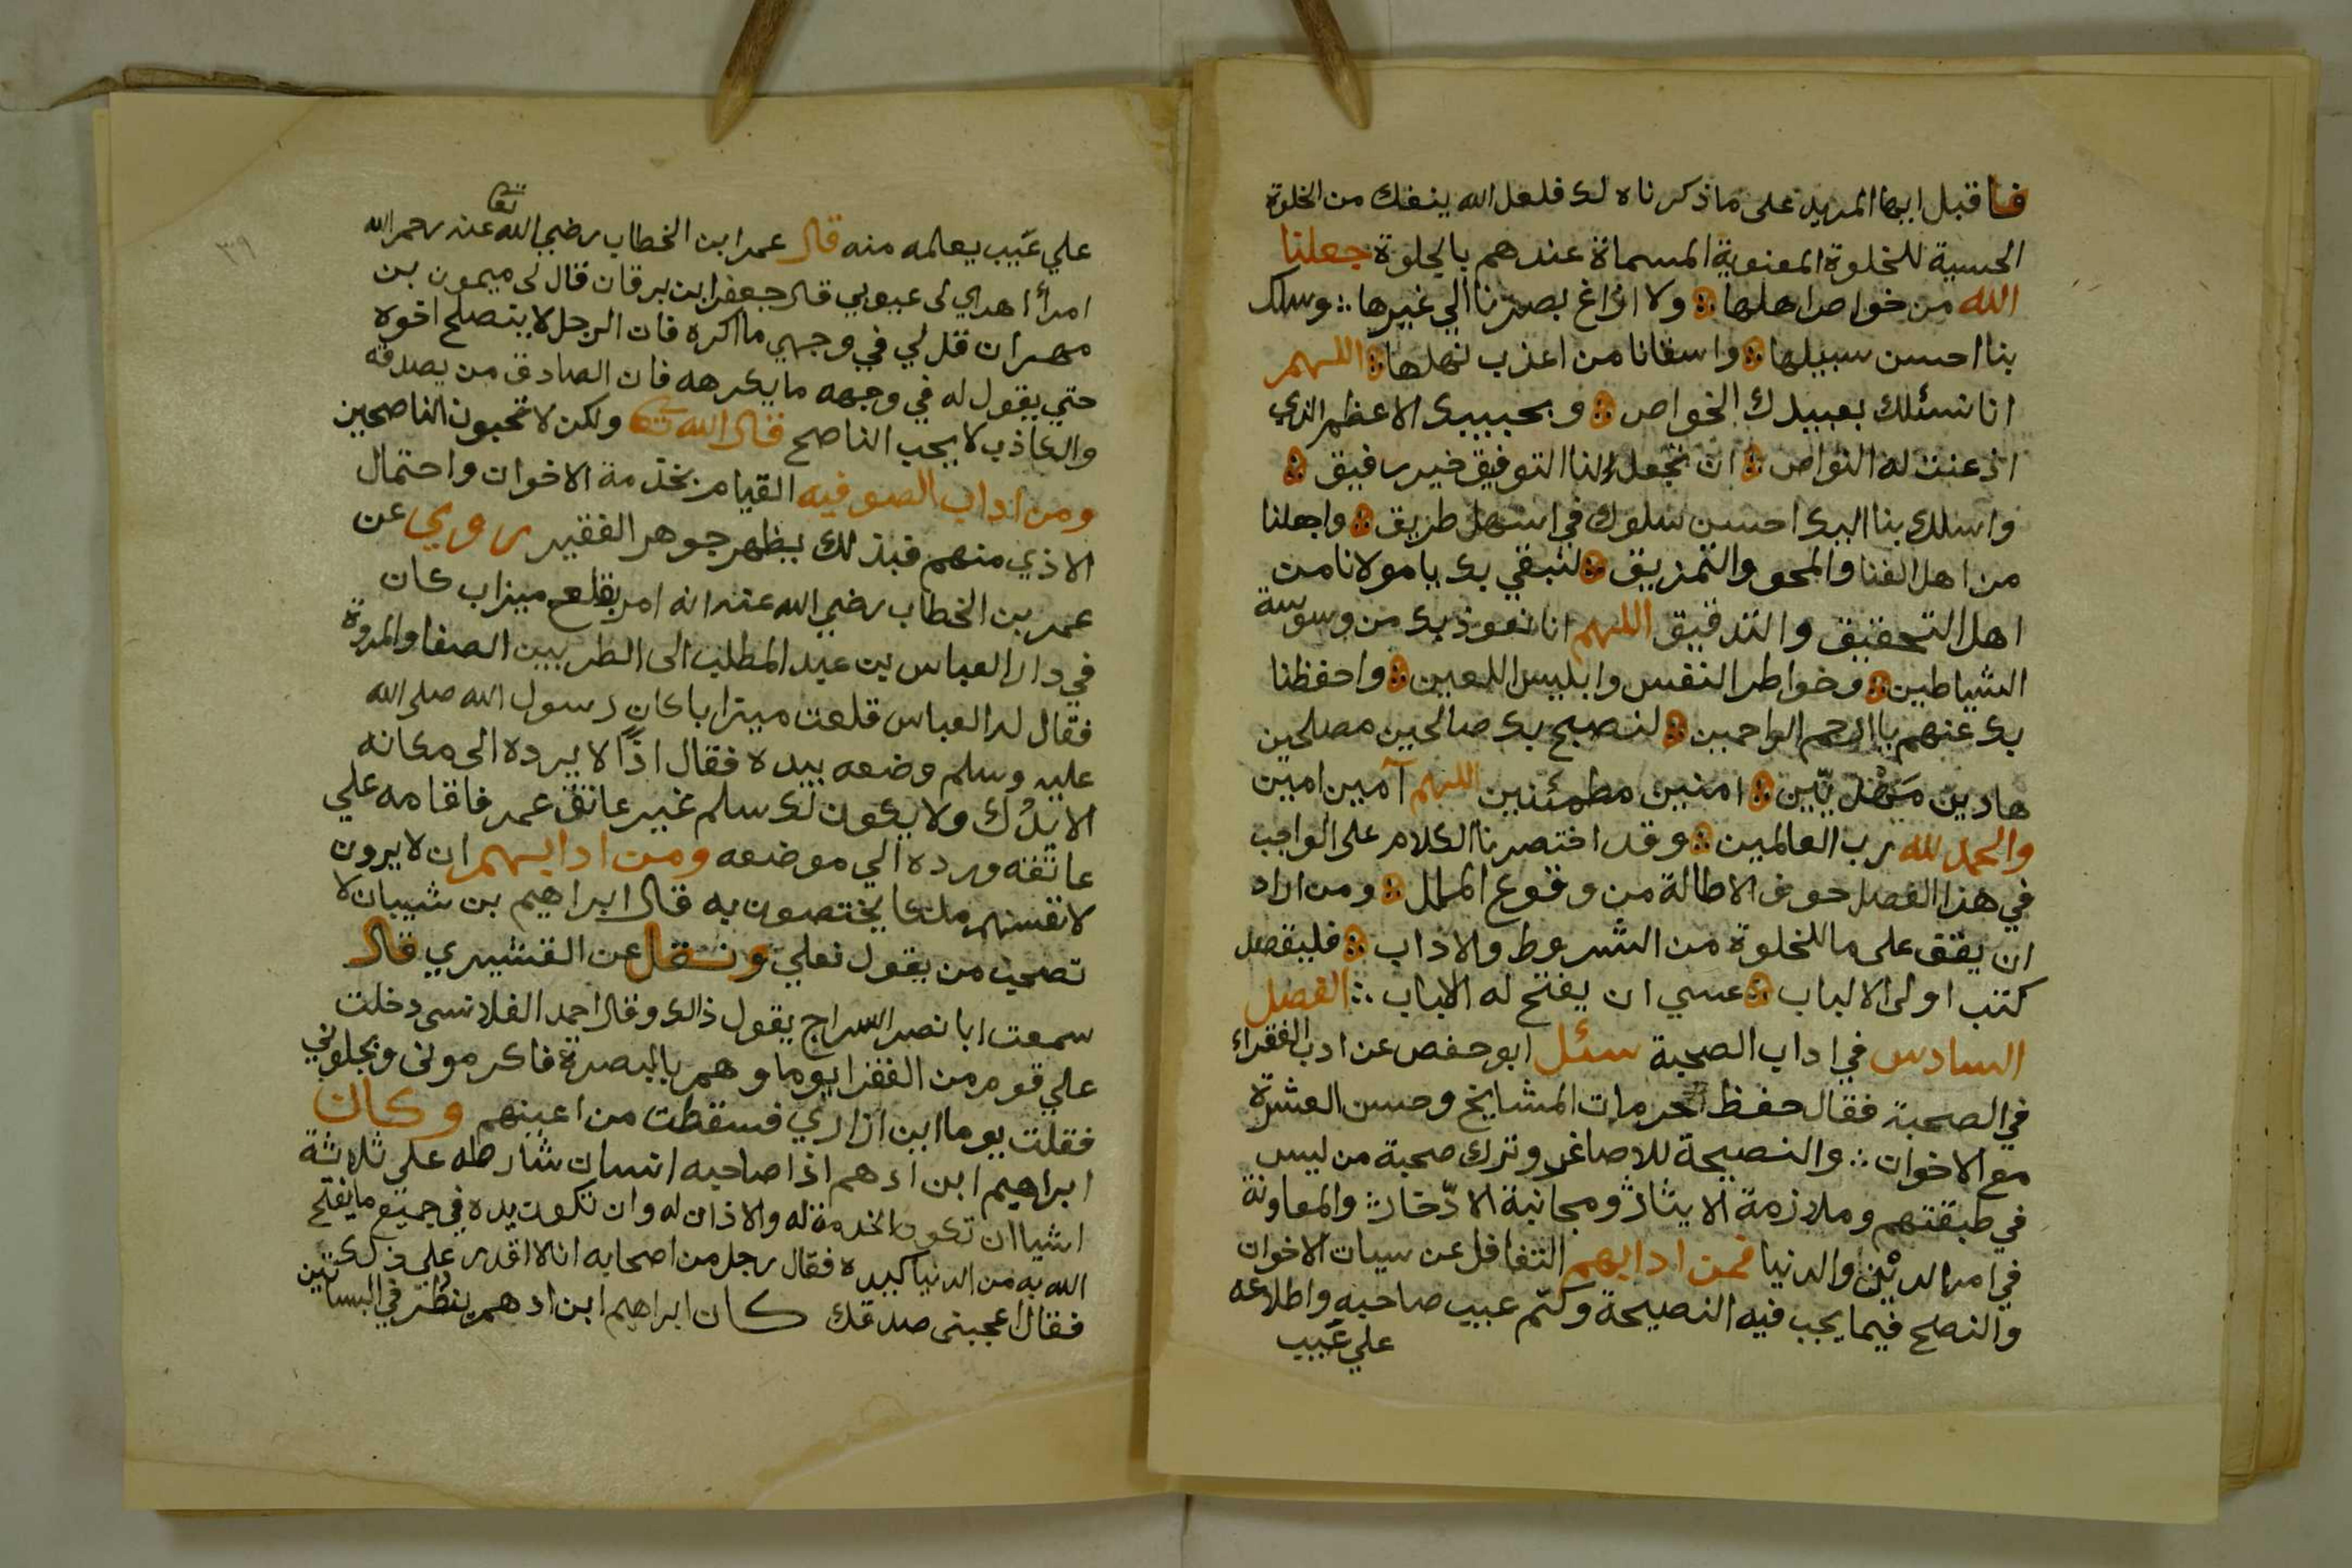 فاقبل ايها المريد على ما ذكرناه لك فلعل الله ينفك من الخلوة
الحسية للخلوة المعنوية المسماة عندهم بالجلوة جعلنا
الله من خواص اهلها ولا ازاغ بصرنا الي غيرها وسلك
بنا احسن سبيلها واسقانا من اعذب نهلها اللهم
انا نسئلك بعبيدك الخواص وبحبيبك الاعظم الذي
اذعنت له النواص ان تجعل لنا التوفيق خير رفيق
واسلك بنا اليك احسن سلوك في اسهل طريق واجعلنا
من اهل الفنا والمحو والتمزيق لنبقي بك يا مولانا من
اهل التحقيق والتدقيق اللهم انا نعوذ بك من وسوسة
الشياطين وخواطر النفس وابليس اللعين واحفظنا
بك عنهم يا ارحم الراحمين لنصبح بك صالحين مصلحين
هادين مَهْديّين امنين مطمئنين اللهم آمين امين
والحمد لله رب العالمين وقد اختصرنا الكلام على الواجب
في هذا الفصل خوف الاطالة من وقوع الملل ومن اراد
ان يقف على ما للخلوة من الشروط والاداب فليقصد
كتب اولى الالباب عسي ان يفتح له الباب الفصل
السادس في اداب الصحبة سئل ابو حفص عن ادب الفقراء
في الصحبة فقال حفظ حرمات المشايخ وحسن العشرة
مع الاخوان والنصيحة للاصاغر وترك صحبة من ليس
في طبقتهم وملازمة الايثار ومجانبة الادّخار والمعاونة
في امر الديْن والدنيا فمن ادابهم التغافل عن سيات الاخوان
والنصح فيما يجب فيه النصيحة وكتم عيب صاحبه واطلاعه
علي عَيب
علي عَيب يعلمه منه قال عمر ابن الخطاب رضي الله تعا عنه رحم الله
امرأ اهدي لى عيوبي قال جعفر ابن برقان قال لى ميمون بن
مهران قل لي في وجهي ما اكره فان الرجل لا ينصلح اخوه
حتي يقول له في وجهه ما يكرهه فان الصادق من يصدقه
والكاذب لا يحب الناصح قال الله تعا ولكن لا تحبون الناصحين
ومن اداب الصوفيه القيام بخدمة الاخوان واحتمال
الاذي منهم فبذلك يظهر جوهر الفقير روي عن
عمر بن الخطاب رضي الله عنه انه امر بقلع ميزاب كان
في دار العباس بن عبد المطلب الى الطر بين الصفا والمروة
فقال له العباس قلعت ميزابا كان رسول الله صلى الله
عليه وسلم وضعه بيده فقال اذًا لا يرده الى مكانه
الا يدُك ولا يكون لك سلم غير عاتق عمر فاقامه علي
عاتقه ورده الي موضعه ومن ادابهم ان لا يرون
لانفسهم ملكا يختصون به قال ابراهيم بن شيبان لا
تصحب من يقول نعلي ونقل عن القشيري قال
سمعت ابا نصر السراج يقول ذالك وقال احمد القلانسى دخلت
علي قوم من الفقرا يوما وهم بالبصرة فاكرمونى وبجلوني
فقلت يوما اين ازاري فسقطت من اعينهم وكان
ابراهيم ابن ادهم اذا صاحبه انسان شارطه على ثلاثة
اشيا ان تكون الخدمة له والاذان له وان تكون يده في جميع ما يفتح
الله به من الدنيا كيده فقال رجل من اصحابه انا لا اقدر علي ذلك
فقال اعجبنى صدقك كان ابراهيم ابن ادهم ينظُر في البساتين